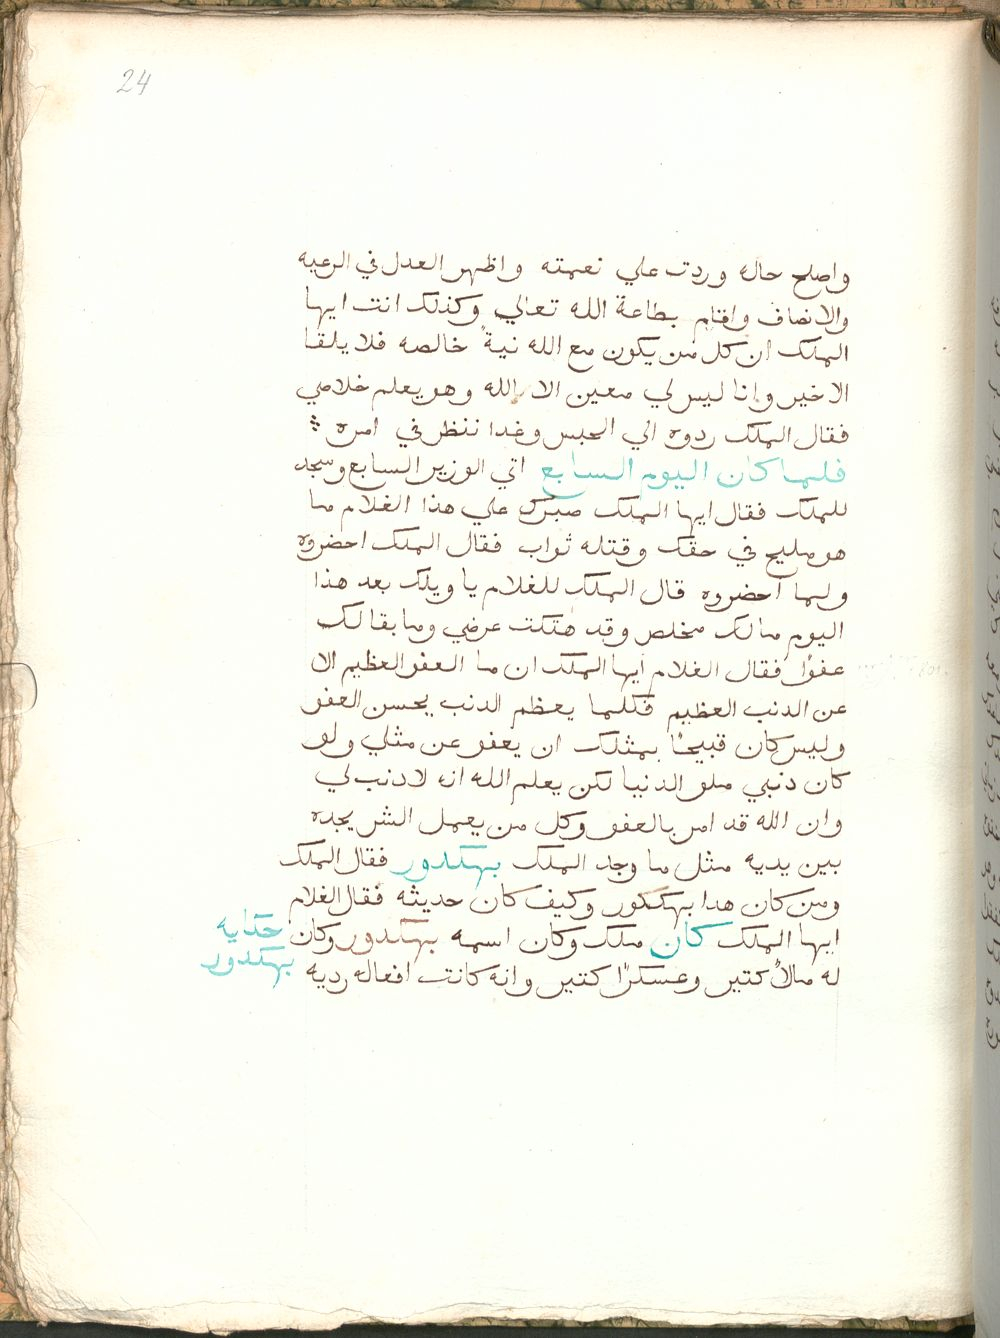 24
واصلح حاله وردت علي نعمته واظهر العدل في الرعيه
والانصاف واقام بطاعة الله تعالي وكذلك انت ايها
الملك ان كل من يكون مع الله نيةً خالصه فلا يلقا
الا خير وانا ليس لي معين الا الله وهو يعلم خلاصي
فقال الملك ردوه الي الحبس وغدا ننظر في امره
فلما كان اليوم السابع اتي الوزير السابع وسجد
للملك فقال ايها الملك صبرك علي هذا الغلام ما
هو مليح في حقك وقتله ثواب فقال الملك احضروه
ولما احضروه قال الملك للغلام يا ويلك بعد هذا
اليوم مالك مخلص وقد هتكت عرضي وما بقا لك
عفوًا فقال الغلام ايها الملك ان ما العفو العظيم الا
عن الدنب العظيم فكلما يعظم الدنب يحسن العفو
وليس كان قبيحًا بمثلك ان يعفو عن مثلي ولو
كان دنبي ملو الدنيا لكن يعلم الله انه لا دنب لي
وان الله قد امر بالعفو وكل من يعمل الشر يجده
بين يديه مثل ما وجد الملك بهكدور فقال الملك
ومن كان هدا بهكدور وكيف كان حديثه فقال الغلام
ايها الملك كان ملك وكان اسمه بهكدور وكان
حكايه
له مالاً كتير وعسكرًا كتير وانه كانت افعاله رديه
بهكدور